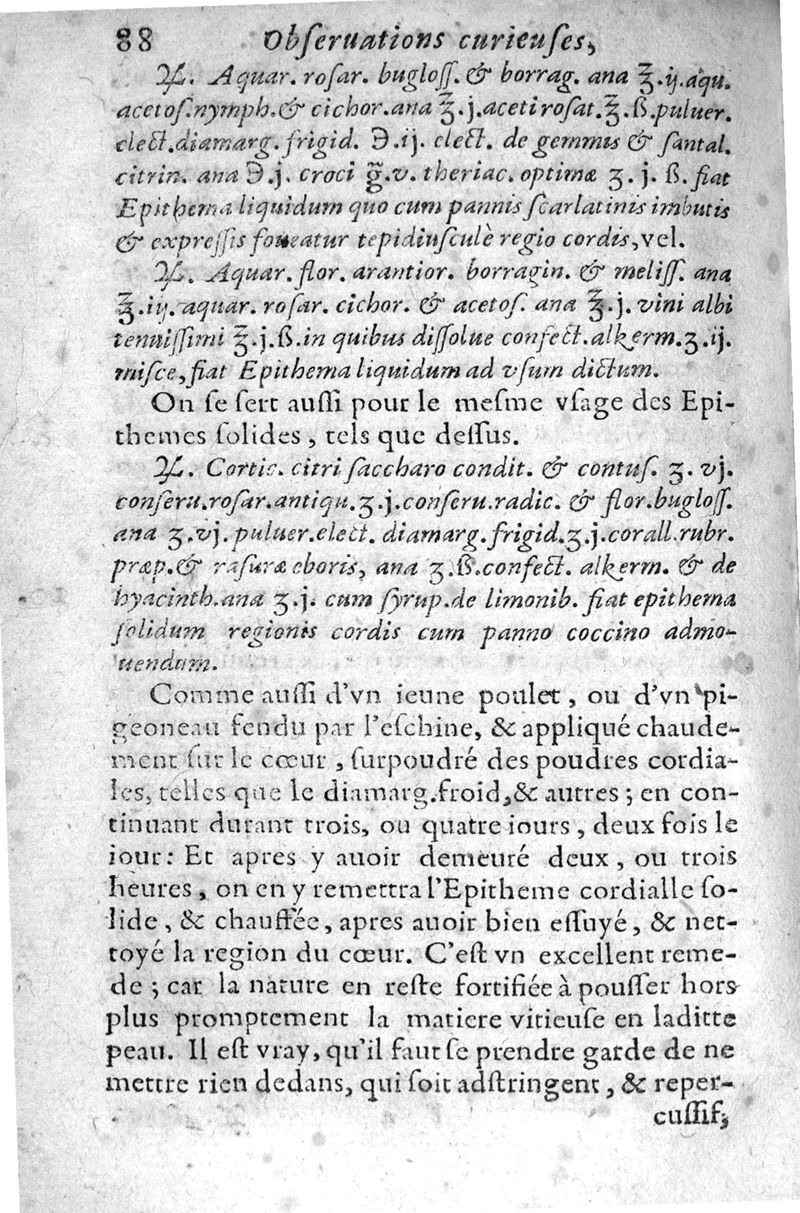 88 Obſeruations curieuſes,
℞. Aquar. roſar. bugloſſ. & borrag. ana ℥.ij. aqu.
acetoſ. nymph. & cichor. ana ℥.j. aceti roſat. ℥.ß. puluer.
elect. diamarg. frigid. ℈.ij. elect. de gemmis & ſantal.
citrin. ana ℈.j. croci g̃.v. theriac. optimæ ʒ.j.ß. fiat
Epithema liquidum quo cum pannis ſcarlatinis imbutis
& expreſſis foueatur tepidiuſculè regio cordis, vel.
℞. Aquar. flor. arantior. borragin. & meliſſ. ana
℥.iij. aquar. roſar. cichor. & acetoſ. ana ℥.j. vini albi
tenuiſſimi ℥.j.ß. in quibus diſſolue confect. alkerm. ʒ.ij.
miſce, fiat Epithema liquidum ad vſum dictum.
On ſe ſert auſſi pour le meſme vſage des Epi-
themes ſolides, tels que deſſus.
℞. Cortic. citri ſaccharo condit. & contuſ. ʒ. vj.
conſeru. roſar. antiqu. ʒ.j. conſeru. radic. & flor. bugloſſ.
ana ʒ.vj. puluer. elect. diamarg. frigid. ʒ.j. corall. rubr.
præp. & raſuræ eboris, ana ʒ.ß. confect. alkerm. & de
hyacinth. ana ʒ.j. cum ſyrup. de limonib. fiat epithema
ſolidum regionis cordis cum panno coccino admo-
uendum.
Comme auſſi d'vn ieune poulet, ou d'vn pi-
geoneau fendu par l'eſchine, & appliqué chaude-
ment ſur le cœur, ſurpoudré des poudres cordia-
les, telles que le diamarg. froid, & autres; en con-
tinuant durant trois, ou quatre iours, deux fois le
iour: Et apres y auoir demeuré deux, ou trois
heures, on en y remettra l'Epitheme cordialle ſo-
lide, & chauffée, apres auoir bien eſſuyé, & net-
toyé la region du cœur. C'eſt vn excellent reme-
de; car la nature en reſte fortifiée à pouſſer hors
plus promptement la matiere vitieuſe en laditte
peau. Il eſt vray, qu'il faut ſe prendre garde de ne
mettre rien dedans, qui ſoit adſtringent, & reper-
cuſſif;